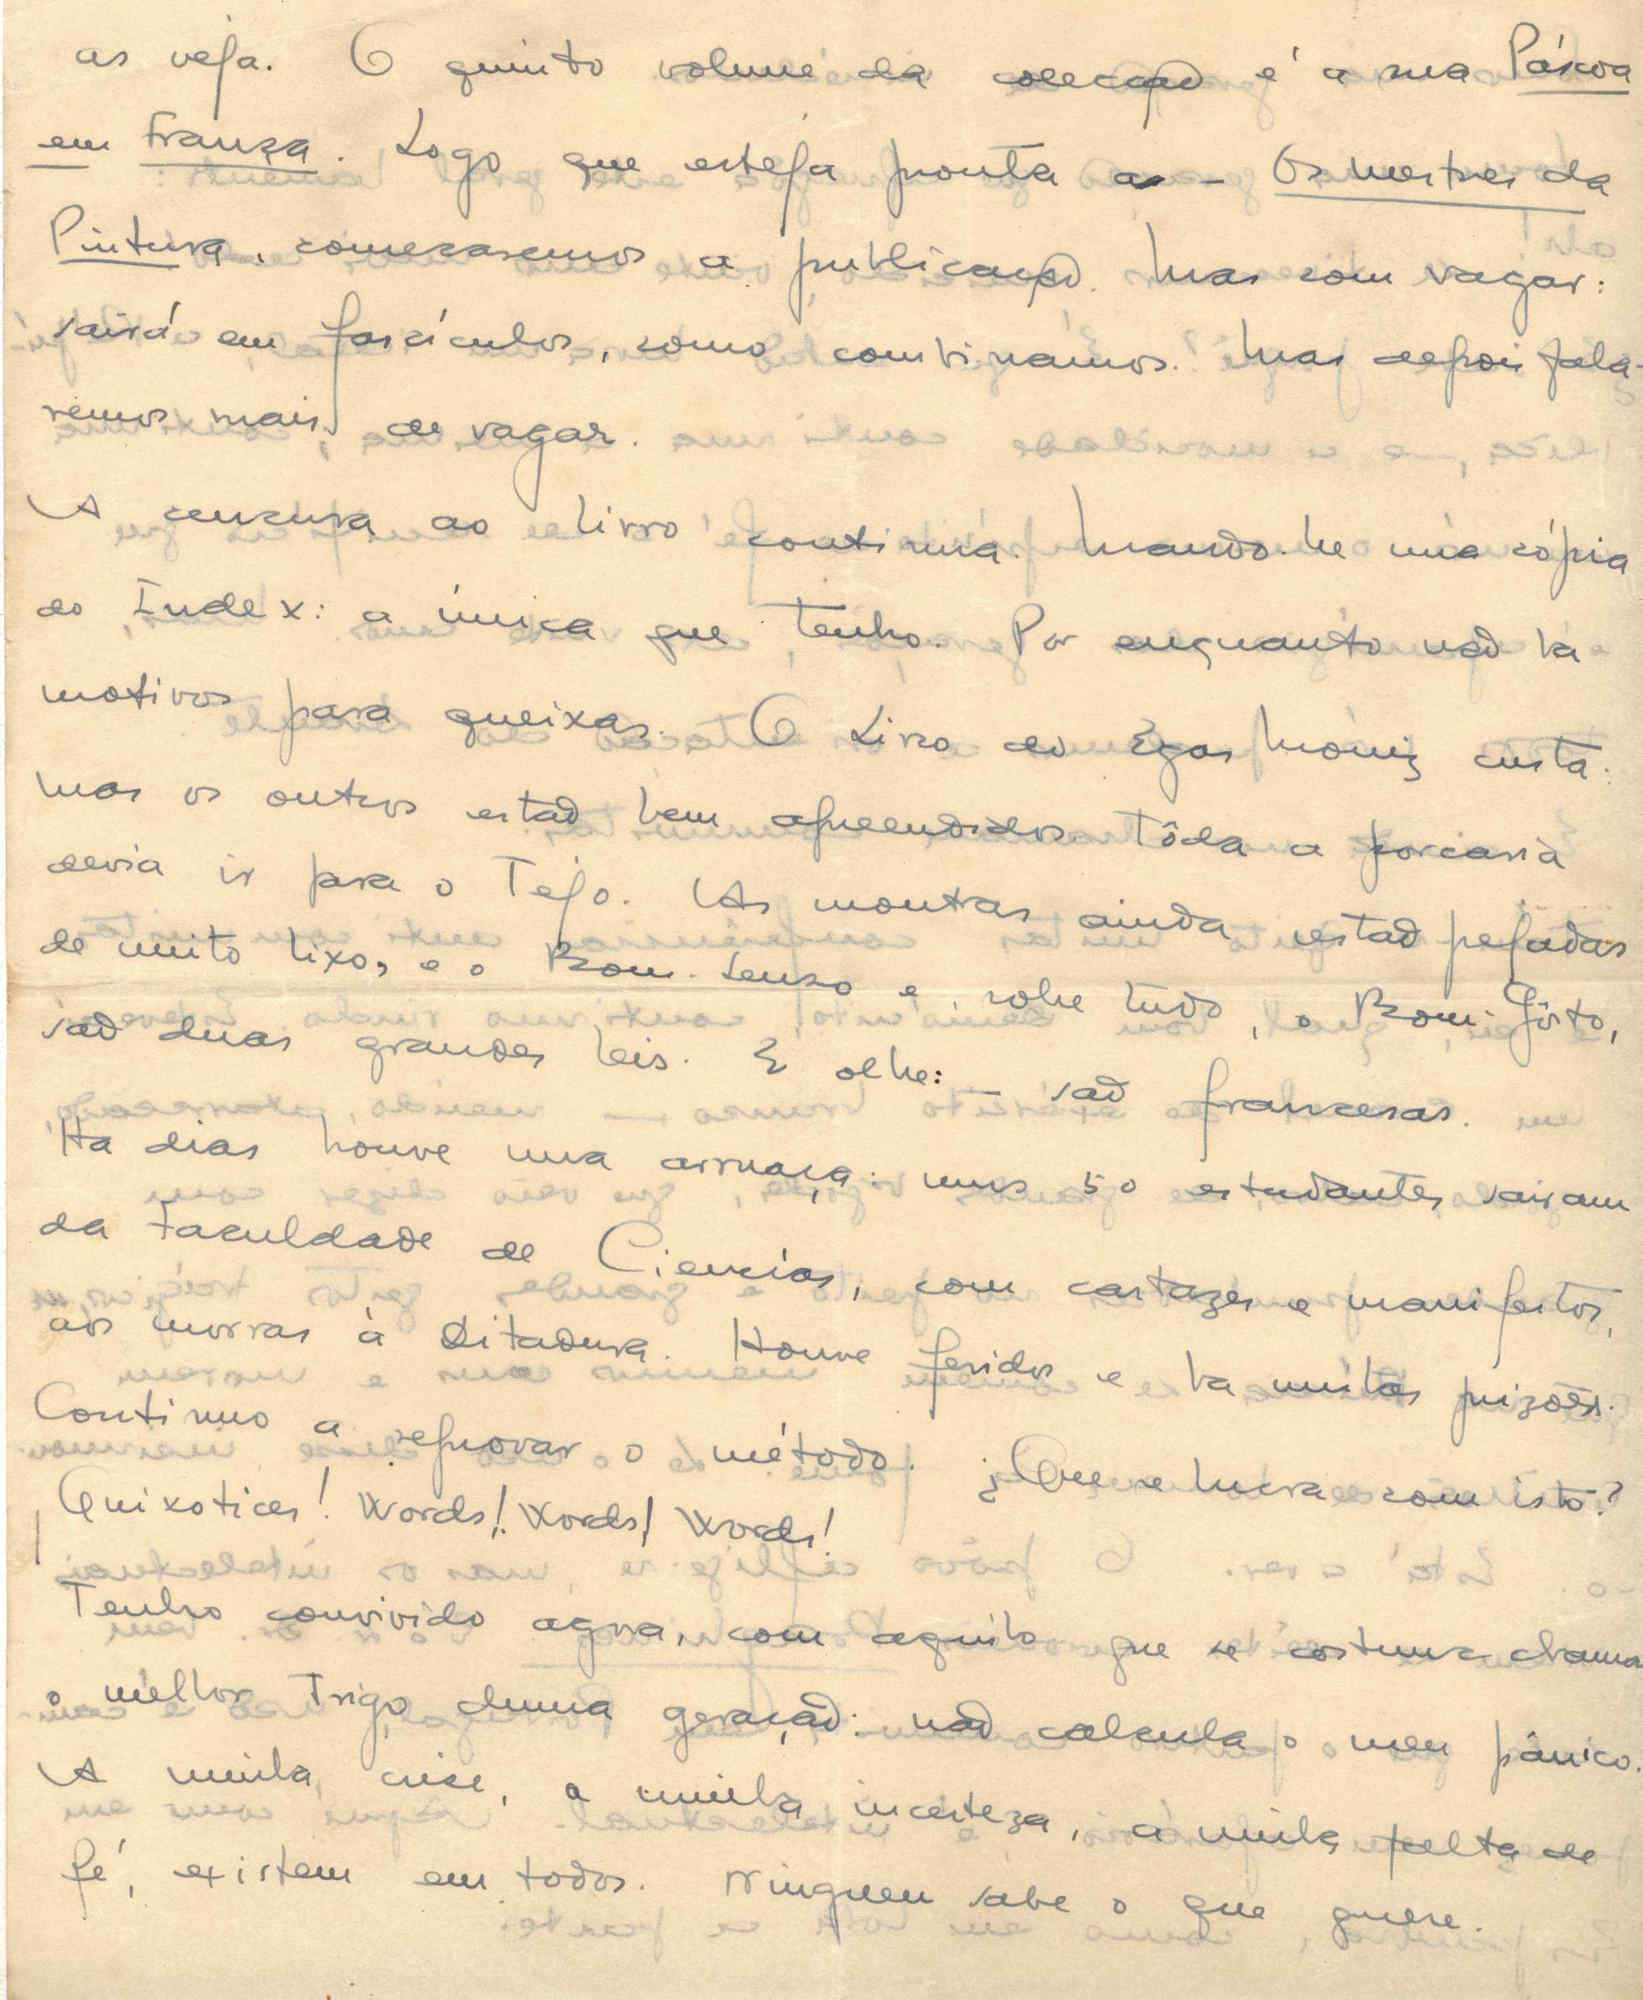 as veja. O quinto volume da colecção é a sua Páscoa
em França. Logo que esteja pronta a - Os Mestres da
Pintura, começaremos a publicação. Mas com vagar:
sairá em fascículos, como combinamos. Mas depois fala-
remos mais, de vagar.
A censura ao livro continua. Mando-lhe uma cópia
do Index: a única que tenho. Por enquanto não ha
motivos para queixas. O Livro do Egas Moniz custa:
mas os outros estão bem apreendidos. Tôda a porcaria
devia ir para o Tejo. As montras ainda estão pejadas
de muito lixo, e o Bom-Senso e, sobre tudo, o Bom-Gôsto,
são duas grandes leis. E olhe: - são francesas.
Ha dias houve uma arruaça: uns 50 estudantes sairam
da Faculdade de Ciencias, com cartazes e manifestos,
aos morras à Ditadura. Houve feridos e ha muitas prizões.
Continuo a reprovar o método. ¿Que se lucra com isto?
Quixotices! Words! Words! Words!
Tenho convivido agora, com aquilo que se costuma chamar
o melhor trigo duma geração: não calcula o meu pânico.
A minha crise, a minha incerteza, a minha falta de
fé, existem em todos. Ninguem sabe o que quere.